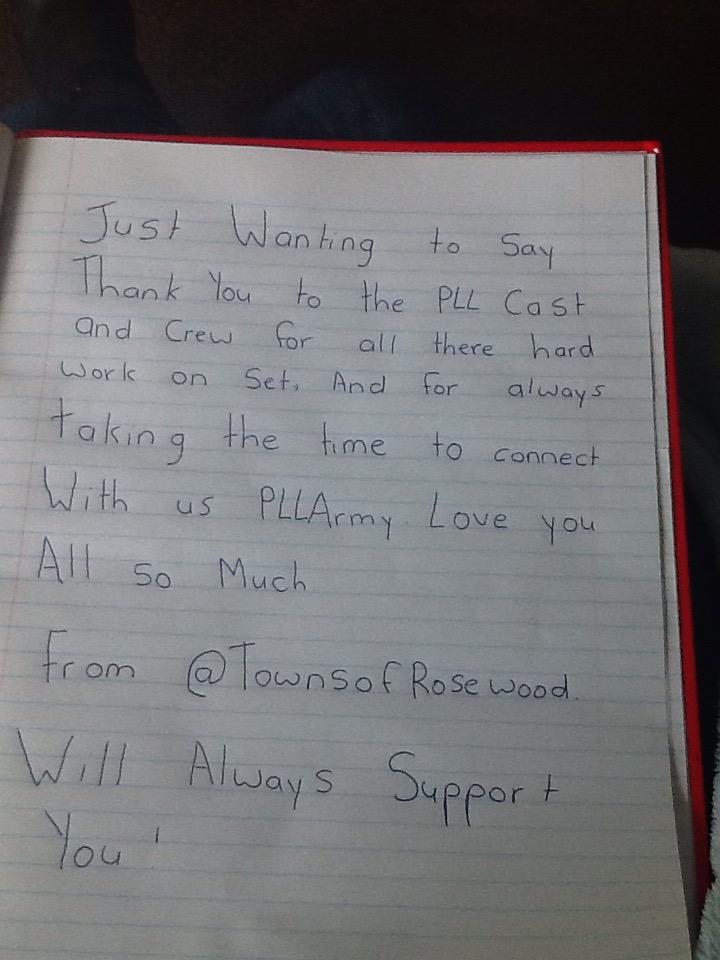 Just Wanting to Say
Thank You to the PLL Cast
and Crew for all there hard
work on Set. And for always
taking the time to connect
With us PLLArmy. Love you
All so Much
From @TownsofRosewood.
Will Always Support
You!